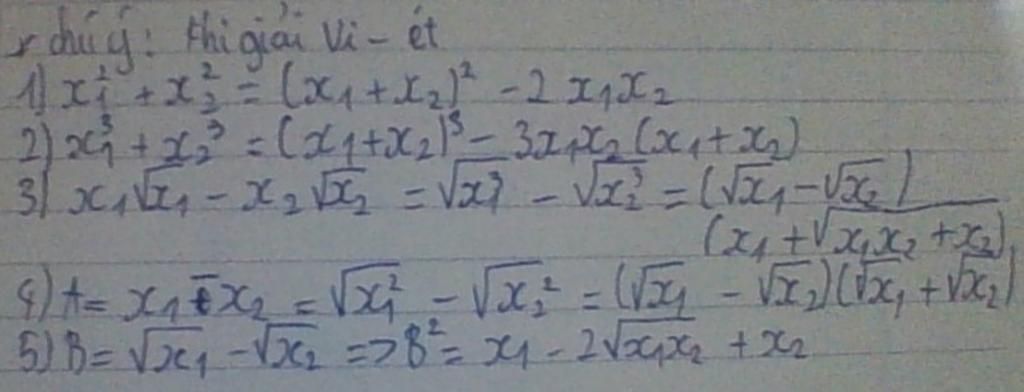 * chú ý: Khi giải Vi-ét
1) x₁² + x₂² = (x₁ + x₂)² - 2x₁x₂
2) x₁³ + x₂³ = (x₁+x₂)³ - 3x₁x₂(x₁+x₂)
3) x₁√x₁ - x₂√x₂ = √x₁³ - √x₂³ = (√x₁ - √x₂)
(x₁ + √(x₁x₂ + x₂)
4) A = x₁ - x₂ = √x₁² - √x₂² = (√x₁ - √x₂)(√x₁ + √x₂)
5) B = √x₁ - √x₂ => B² = x₁ - 2√x₁x₂ + x₂